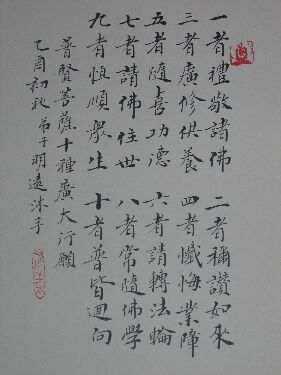 一者禮敬諸佛 二者稱讚如來
三者廣修供養 四者懺悔業障
五者隨喜功德 六者請轉法輪
七者請佛住世 八者常隨佛學
九者恒順眾生 十者普皆迴向
普賢菩薩十種廣大行願
乙酉初秋弟子明遠沐手